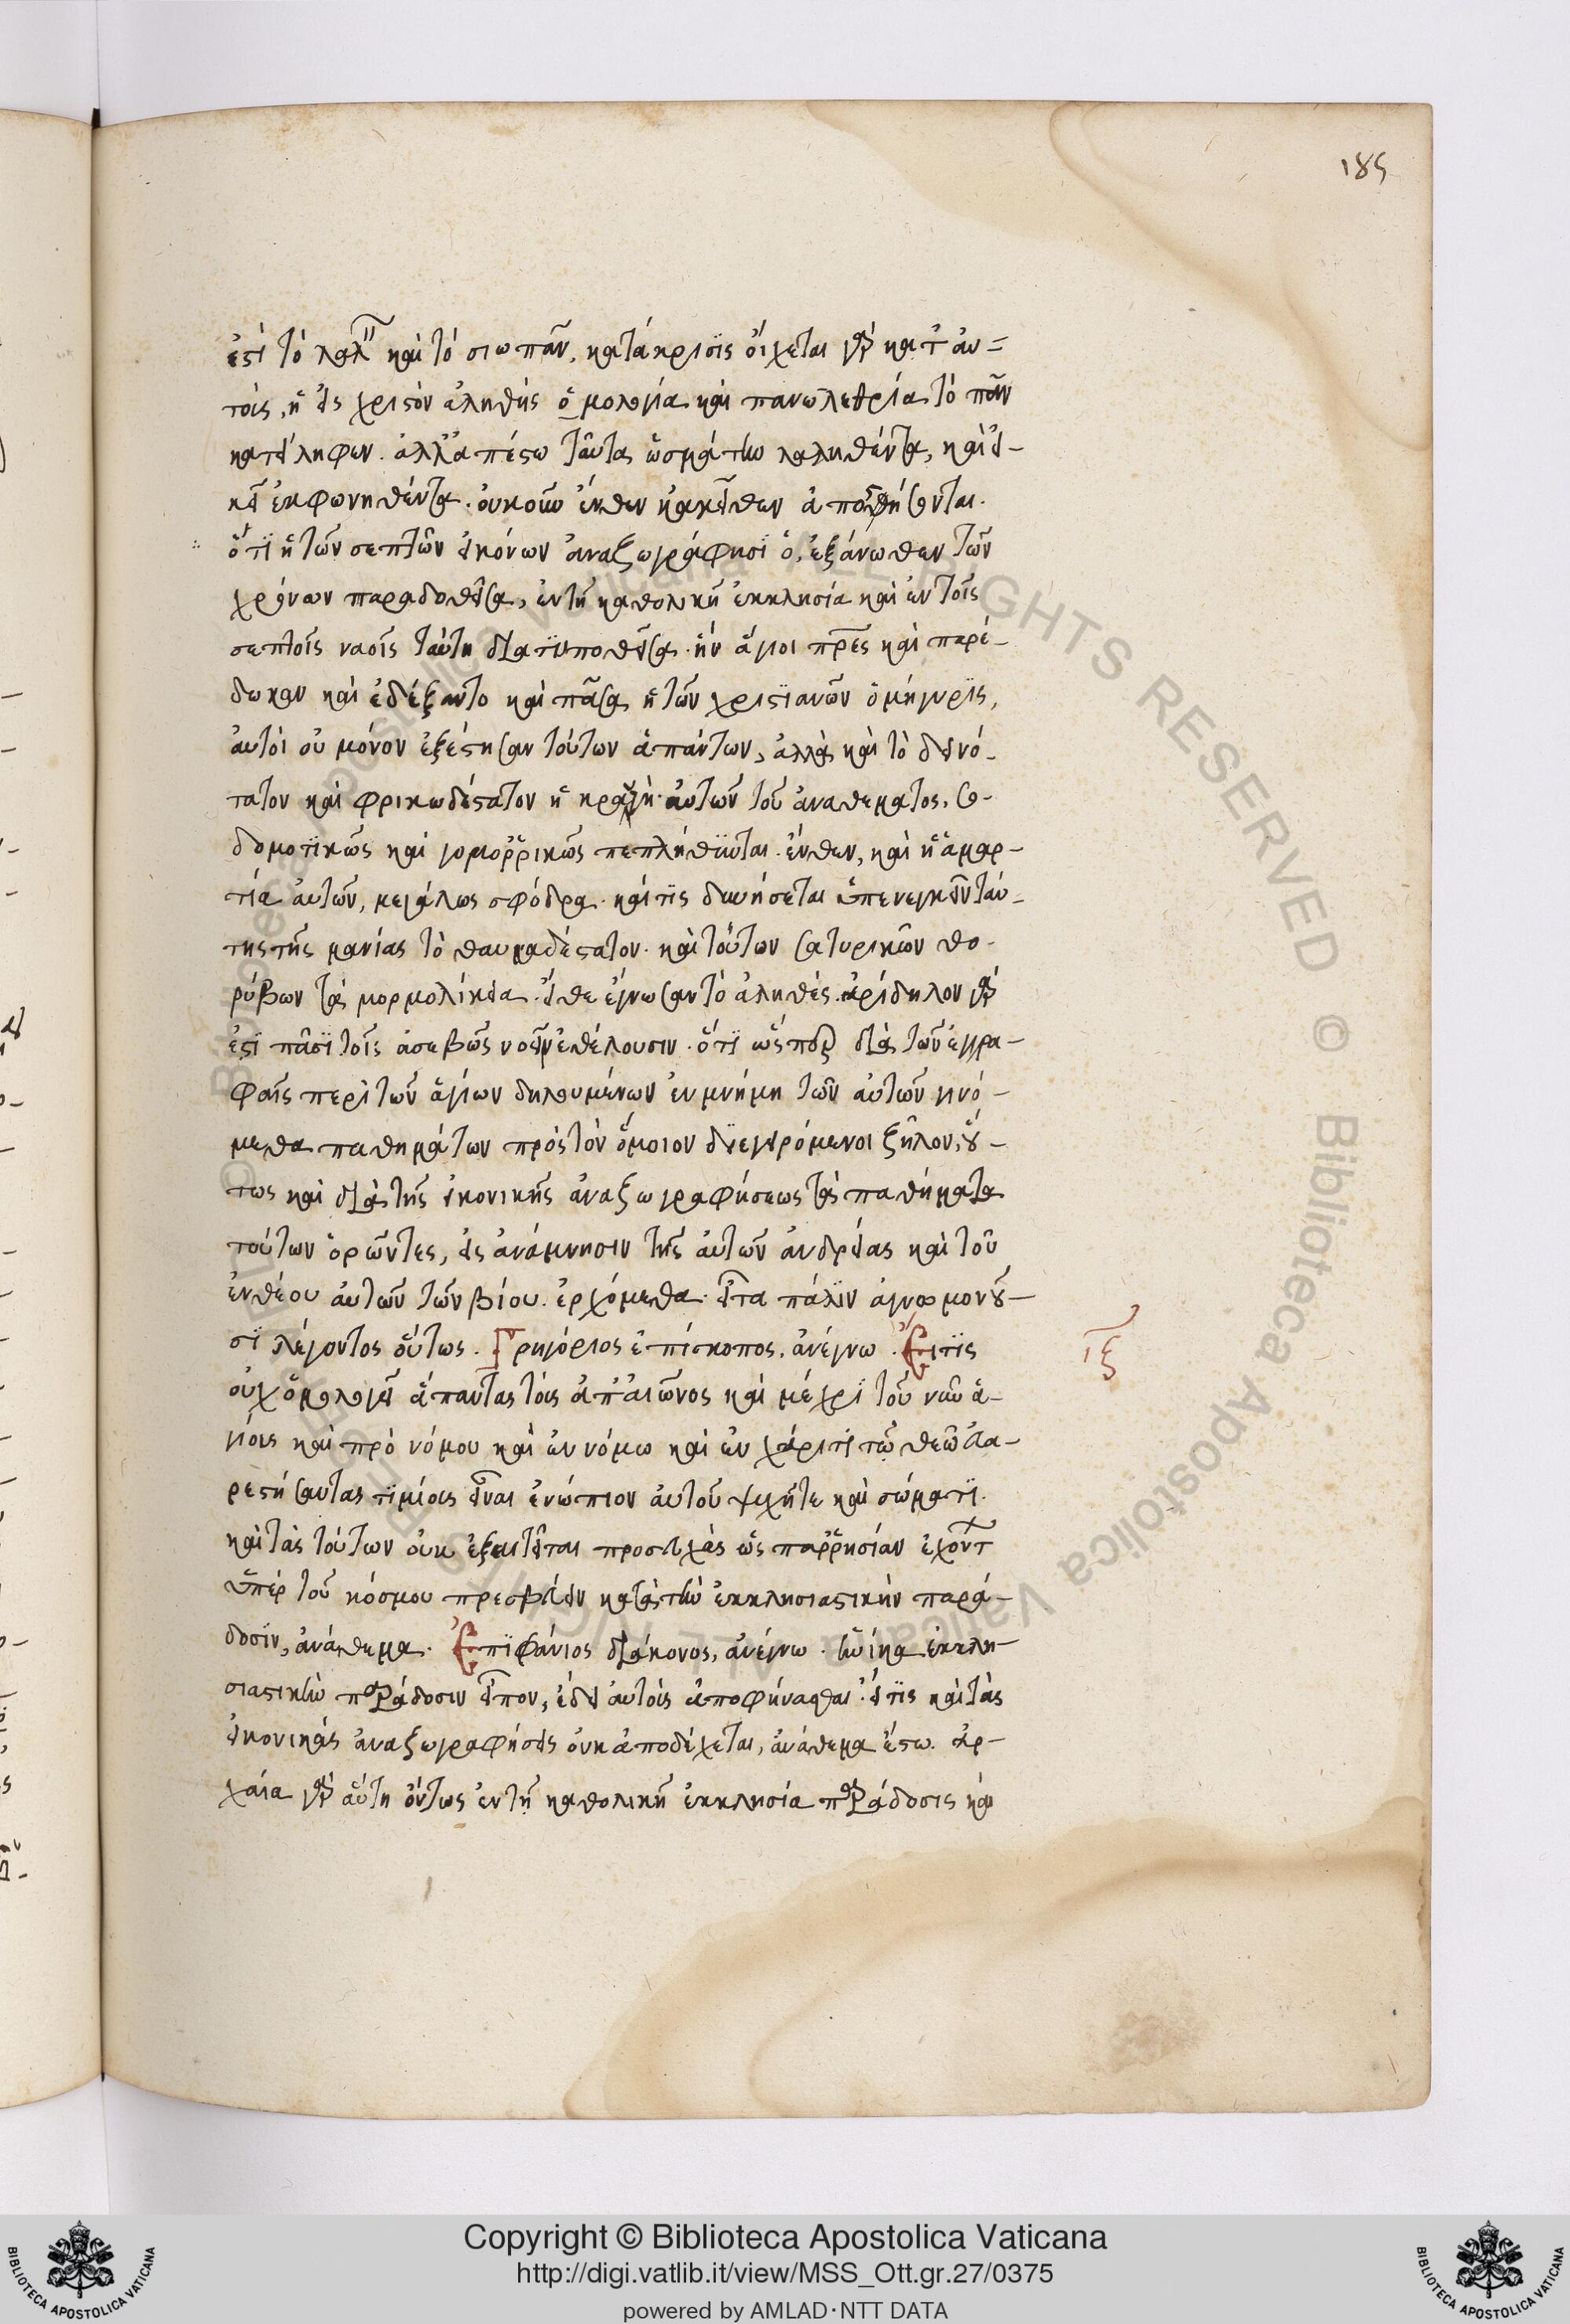 185
ἐστὶ τὸ λαλεῖν καὶ τὸ σιωπᾶν, κατάκρισις οἴχεται γὰρ κατ' αυ=
τοὺς, ἡ εἰς χριστὸν ἀληθὴς ὁμολογία καὶ πανωλεθρία τὸ πᾶν
κατείληφεν. ἀλλ' ἀπέστω ταῦτα ὡς μάτην λαληθέντα, καὶ εἰ-
κῆ ἐκφωνηθέντα. οὐκοῦν ἔνθεν κἀκεῖθεν
ὅτι ἡ τῶν σεπτῶν εἰκόνων ἀναζωγράφησις, ἐξ ἄνωθεν τῶν
χρόνων παραδοθεῖσα, ἐν τῇ καθολικῇ ἐκκλησίᾳ καὶ ἐν τοῖς
σεπτοῖς ναοῖς ταύτη διατυποθεῖσα. ἣν ἅγιοι πρες καὶ παρέ-
δωκαν καὶ ἐδέξαντο καὶ πᾶσα ἡ τῶν χριστιανῶν ὁμήγυρις,
αὐτοὶ οὐ μόνον ἐξέστησαν τούτων ἁπάντων, ἀλλὰ καὶ τὸ δεινό-
τατον καὶ φρικωδέστατον ἡ κραυγὴ αὐτῶν τοῦ ἀναθεματος, σο-
δομοτικῶς καὶ γομορρικῶς πεπλήθυνται. ἔνθεν, καὶ ἡ ἁμαρ-
τία αὐτῶν, μεγάλως σφόδρα. καὶ τὶς δυνήσεται ὑπενεγκεῖν ταύ-
της τῆς μανίας τὸ θαυμαδέστατον. καὶ τούτων σατυρικῶν θο-
ρύβων τὰ μορμολίκεια. εἴθε ἔγνωσαν τὸ ἀληθές. ἀρίδηλον γάρ
ἐστι πᾶσι τοῖς ἀσεβῶς νοεῖν ἐθέλουσιν. ὅτι ὥσπερ διὰ τῶν ἐγγρα-
φαῖς περὶ τῶν ἁγίων δηλουμένων ἐν μνήμη τῶν αὐτῶν γινό-
μεθα παθημάτων πρὸς τὸν ὅμοιον διεγειρόμενοι ζῆλον, οὕ-
τως καὶ διὰ τῆς εἰκονικῆς ἀναζωγραφήσεως τὰ παθήματα
τούτων ὁρῶντες, εἰς ἀνάμνησιν τῆς αὐτῶν ἀνδρείας καὶ τοῦ
ἐνθέου αὐτῶν τῶν βίου. ἐρχόμεθα. εἶτα πάλιν ἀγνωμονοῦ-
σι λέγοντος οὕτως. Γρηγόριος ἐπίσκοπος, ἀνέγνω. Εἴ τις
ιξ
οὐχ ὁμολογεῖ ἅπαντας τοὺς ἀπ' αἰῶνος καὶ μέχρι τοῦ νῦν ἁ-
γίους καὶ πρὸ νόμου καὶ ἐν νόμω καὶ ἐν χάριτι τῷ θεῷ εὐα-
ρεστήσαντας τιμίους εἶναι ἐνώπιον αὐτοῦ ψυχῆ τε καὶ σώματι.
καὶ τὰς τούτων οὐκ ἐξαιτεῖται προσευχὰς ὡς παρρησίαν ἐχόντ
ὑπὲρ τοῦ κόσμου πρεσβεύειν κατὰ τὴν ἐκκλησιαστικὴν παρά-
δοσιν, ἀνάθεμα. Ἐπιφάνιος διάκονος, ἀνέγνω. ἡνίκα ἐκκλη-
σιαστικὴν παράδοσιν εἶπον, ἔδει αὐτοὺς ἀποφήνασθαι. εἴ τις καὶ τὰς
εἰκονικὰς ἀναζωγραφήσεις οὐκ ἀποδέχεται, ἀνάθεμα ἔστω. ἀρ-
χαία γὰρ αὕτη ὄντως ἐν τῇ καθολικῇ ἐκκλησία παράδοσις καὶ
© Biblioteca Apostolica Vaticana ALL RIGHTS RESERVED
Copyright © Biblioteca Apostolica Vaticana
http://digi.vatlib.it/view/MSS_Ott.gr.27/0375
powered by AMLAD·NTT DATA
BIBLIOTECA APOSTOLICA VATICANA
BIBLIOTECA APOSTOLICA VATICANA